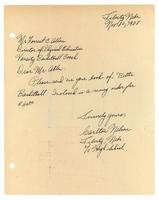 Liberty Nebr.
Nov. 30, 1938
Mr Forrest C. Allen
Director of Physical Education
Varsity Basketball Coach
Dear Mr. Allen:
Please send me your book of, "Better
Basketball." Inclosed is a money order for
Sincerely yours,
Carlton Nelson
Liberty, Nebr.
% High School